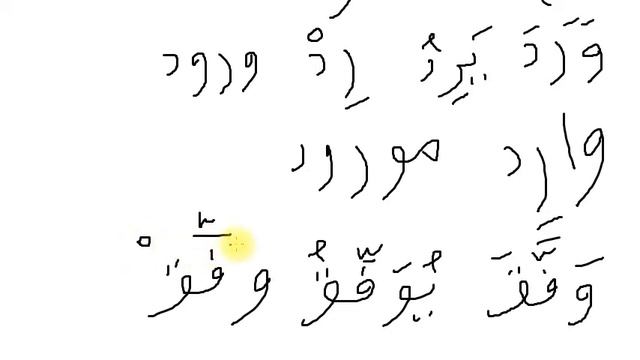 وَرَدَ يَرِدُ رِدْ ورود
وارد مورود
وَفَّقَ يُوَفِّقُ وفِّقْ